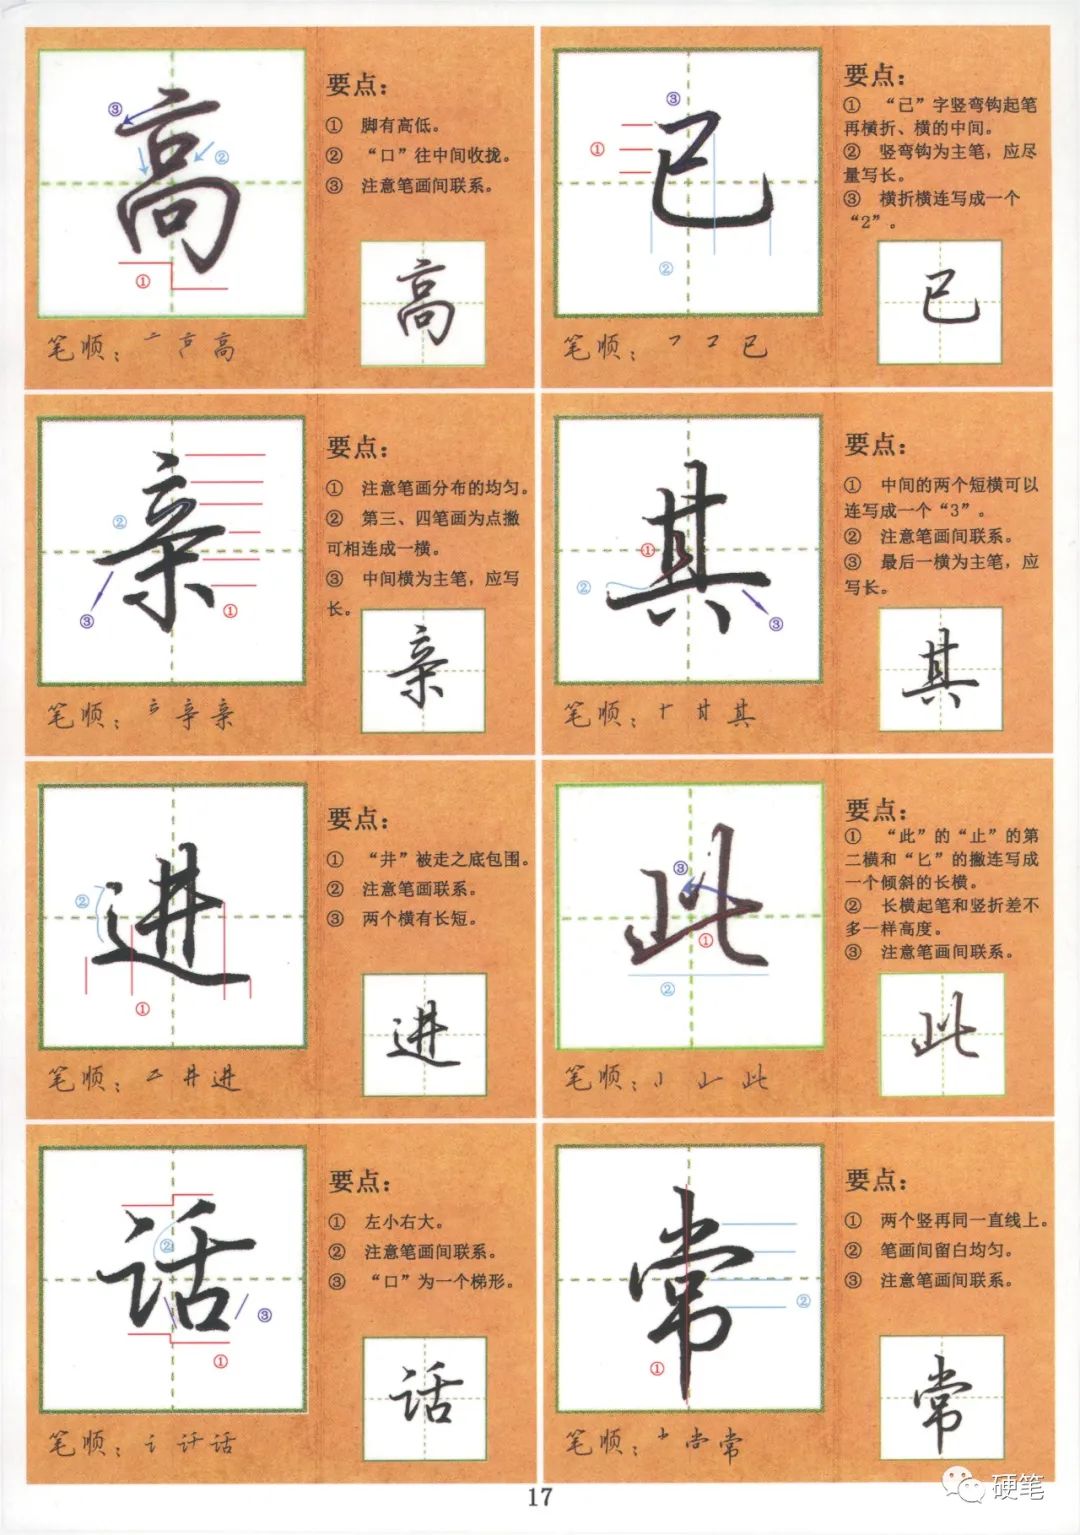 高
要点：
① 脚有高低。
② “口”往中间收拢。
③ 注意笔画间联系。
③
②
①
高
笔顺：亠 高
已
要点：
① “已”字竖弯钩起笔
再横折、横的中间。
② 竖弯钩为主笔，应尽
量写长。
③ 横折横连写成一个
“2”。
③
①
②
已
笔顺：㇕ コ 已
亲
要点：
① 注意笔画分布的均匀。
② 第三、四笔画为点撇
可相连成一横。
③ 中间横为主笔，应写
长。
②
①
③
亲
笔顺：亲 亲
其
要点：
① 中间的两个短横可以
连写成一个“3”。
② 注意笔画间联系。
③ 最后一横为主笔，应
写长。
①
②
③
其
笔顺：十 甘 其
进
要点：
① “井”被走之底包围。
② 注意笔画联系。
③ 两个横有长短。
②
①
进
笔顺：二 井 进
此
要点：
① “此”的“止”的第
二横和“匕”的撇连写成
一个倾斜的长横。
② 长横起笔和竖折差不
多一样高度。
③ 注意笔画间联系。
③
①
②
此
笔顺：止 此
话
要点：
① 左小右大。
② 注意笔画间联系。
③ “口”为一个梯形。
②
③
①
话
笔顺：讠 讦 话
常
要点：
① 两个竖再同一直线上。
② 笔画间留白均匀。
③ 注意笔画间联系。
②
①
常
笔顺：尚 常
17
硬笔